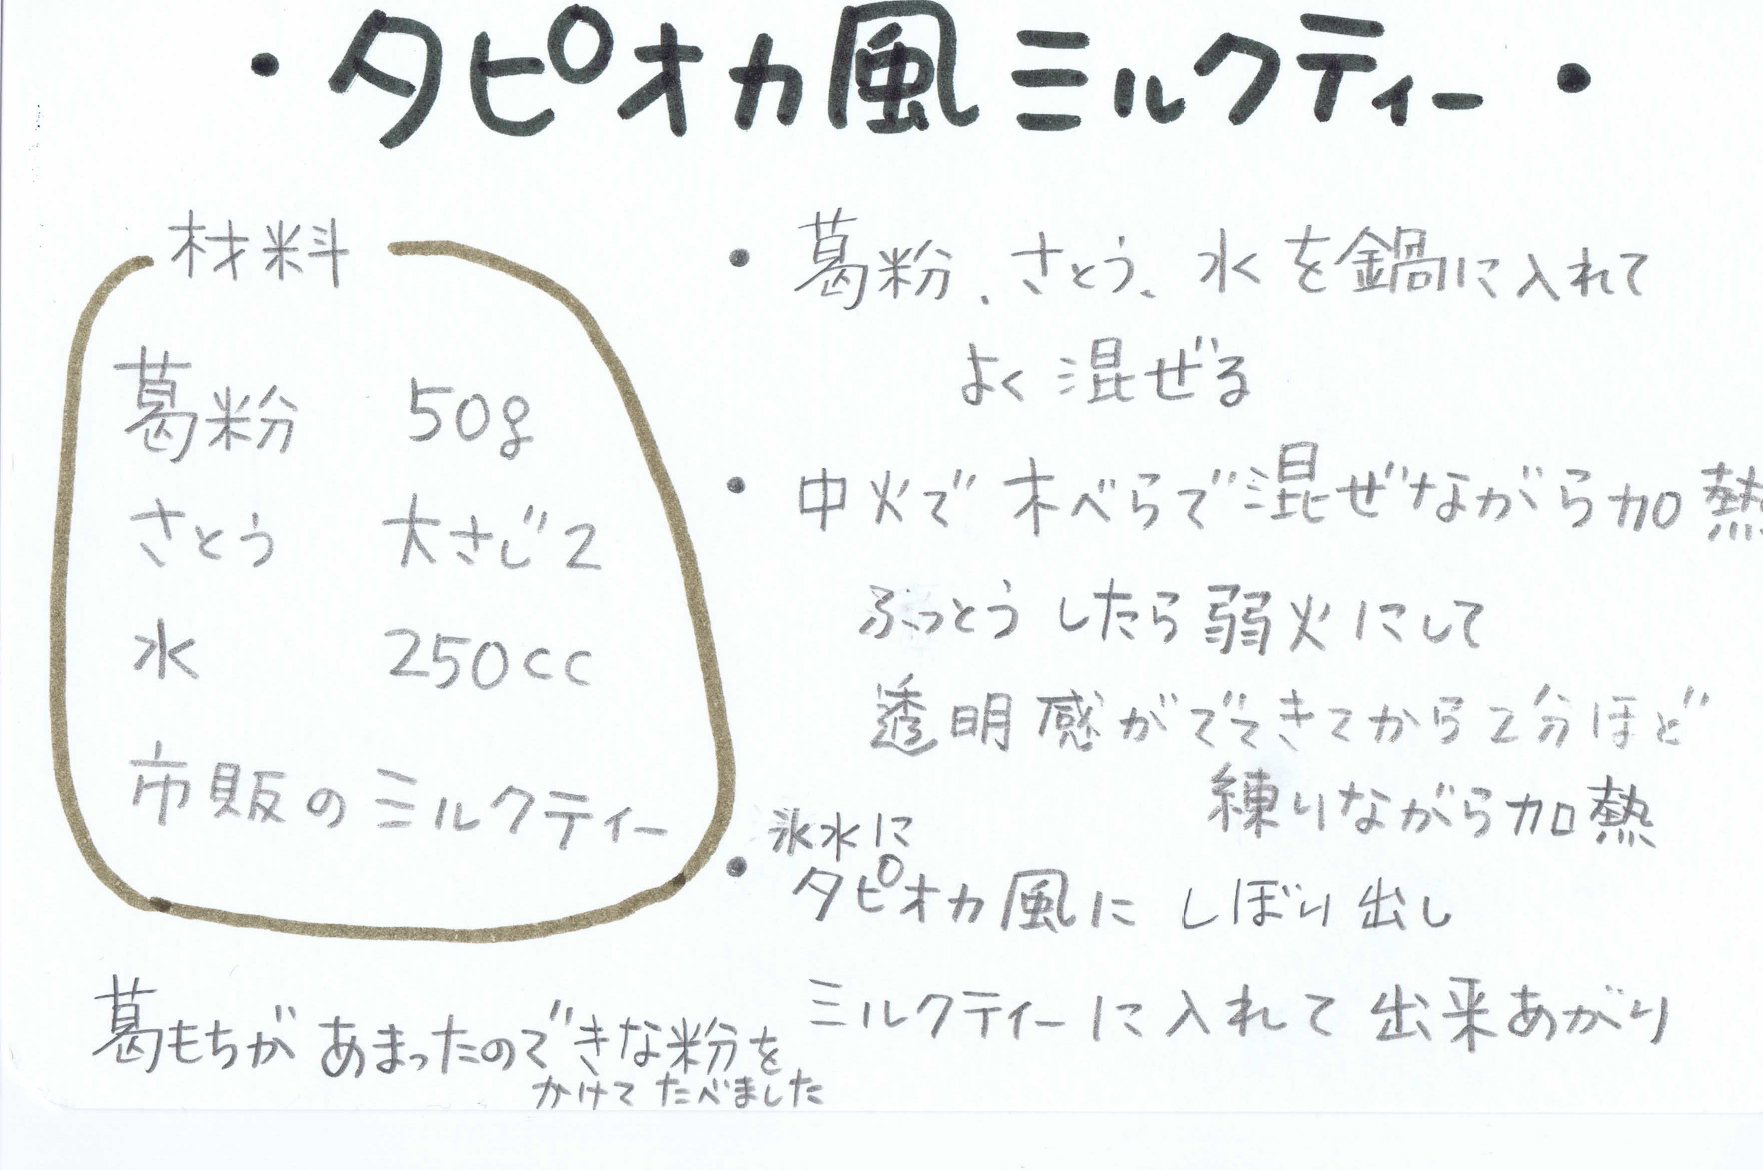 ・タピオカ風ミルクティー・
材料
葛粉 50g
さとう 大さじ2
水 250cc
市販のミルクティー
・葛粉、さとう、水を鍋に入れて
よく混ぜる
・中火で木べらで混ぜながら加熱
ふっとうしたら弱火にして
透明感がでてきてから2分ほど
練りながら加熱
・氷水に
タピオカ風にしぼり出し
ミルクティーに入れて出来あがり
葛もちがあまったのできな粉を
かけてたべました